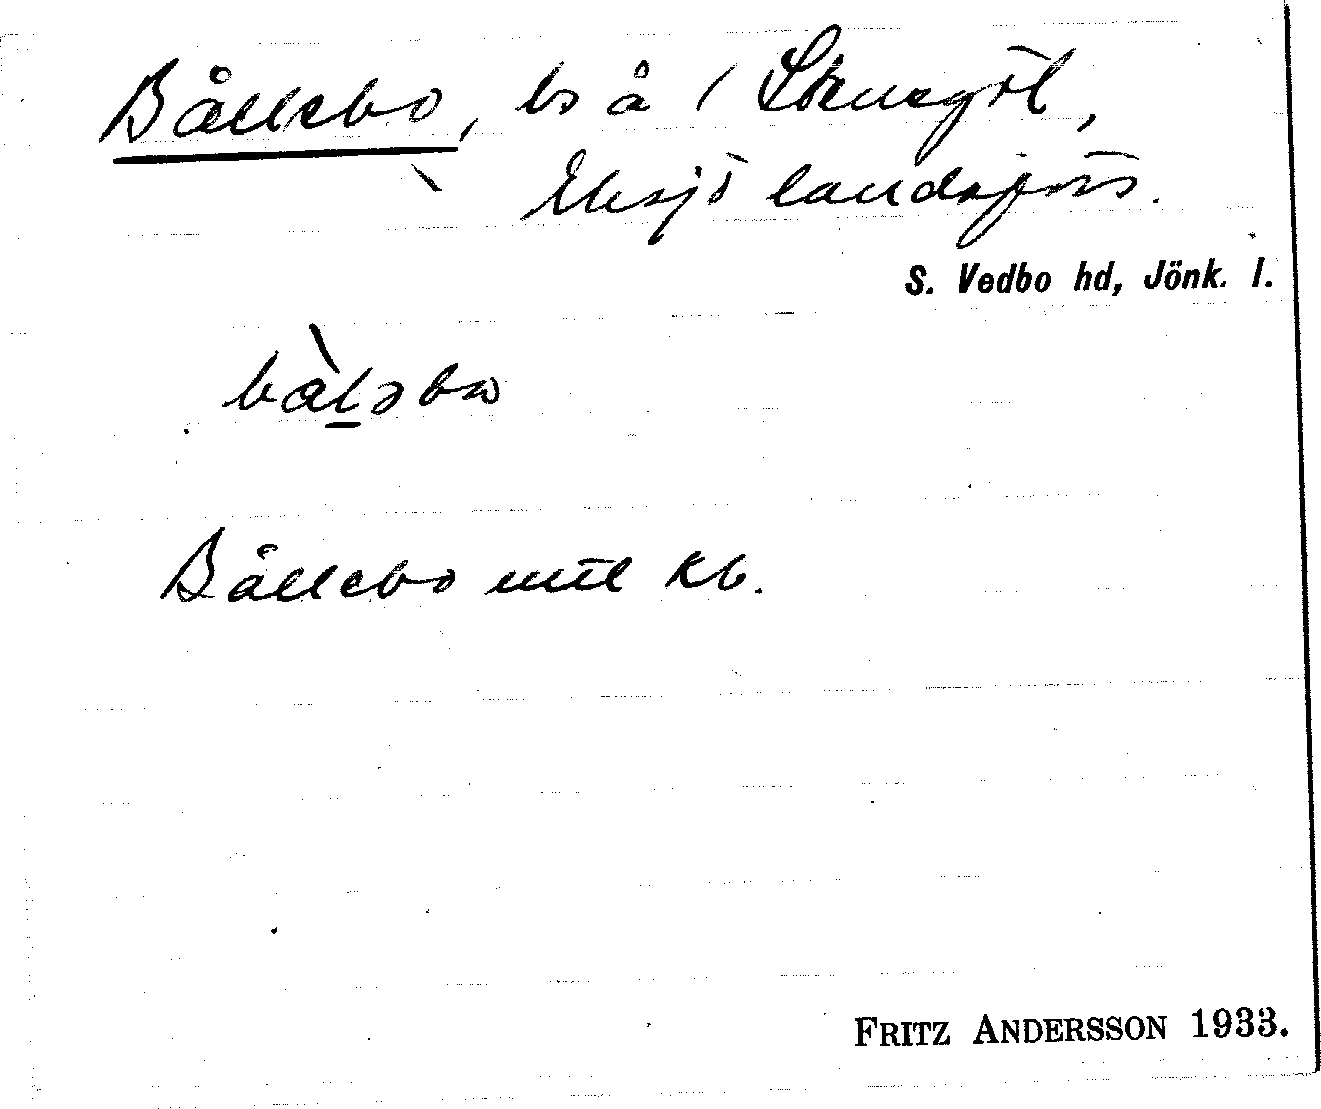 Bållebo, ls å 1 Stenegöl,
Eksjö landsförs.
S. Vedbo hd, Jönk. l.
Bållebo mtl Kb.
FRITZ ANDERSSON 1933.